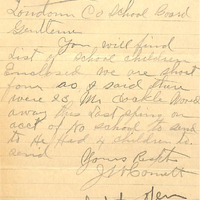 Loudoun Co School Board
Gentlemen
You will find
List of School Children
Enclosed we are short
four as I said there
were 23, Mr Wood
away this last spring on
acct of no school to send
to He had 4 children to
send
Yours Respt